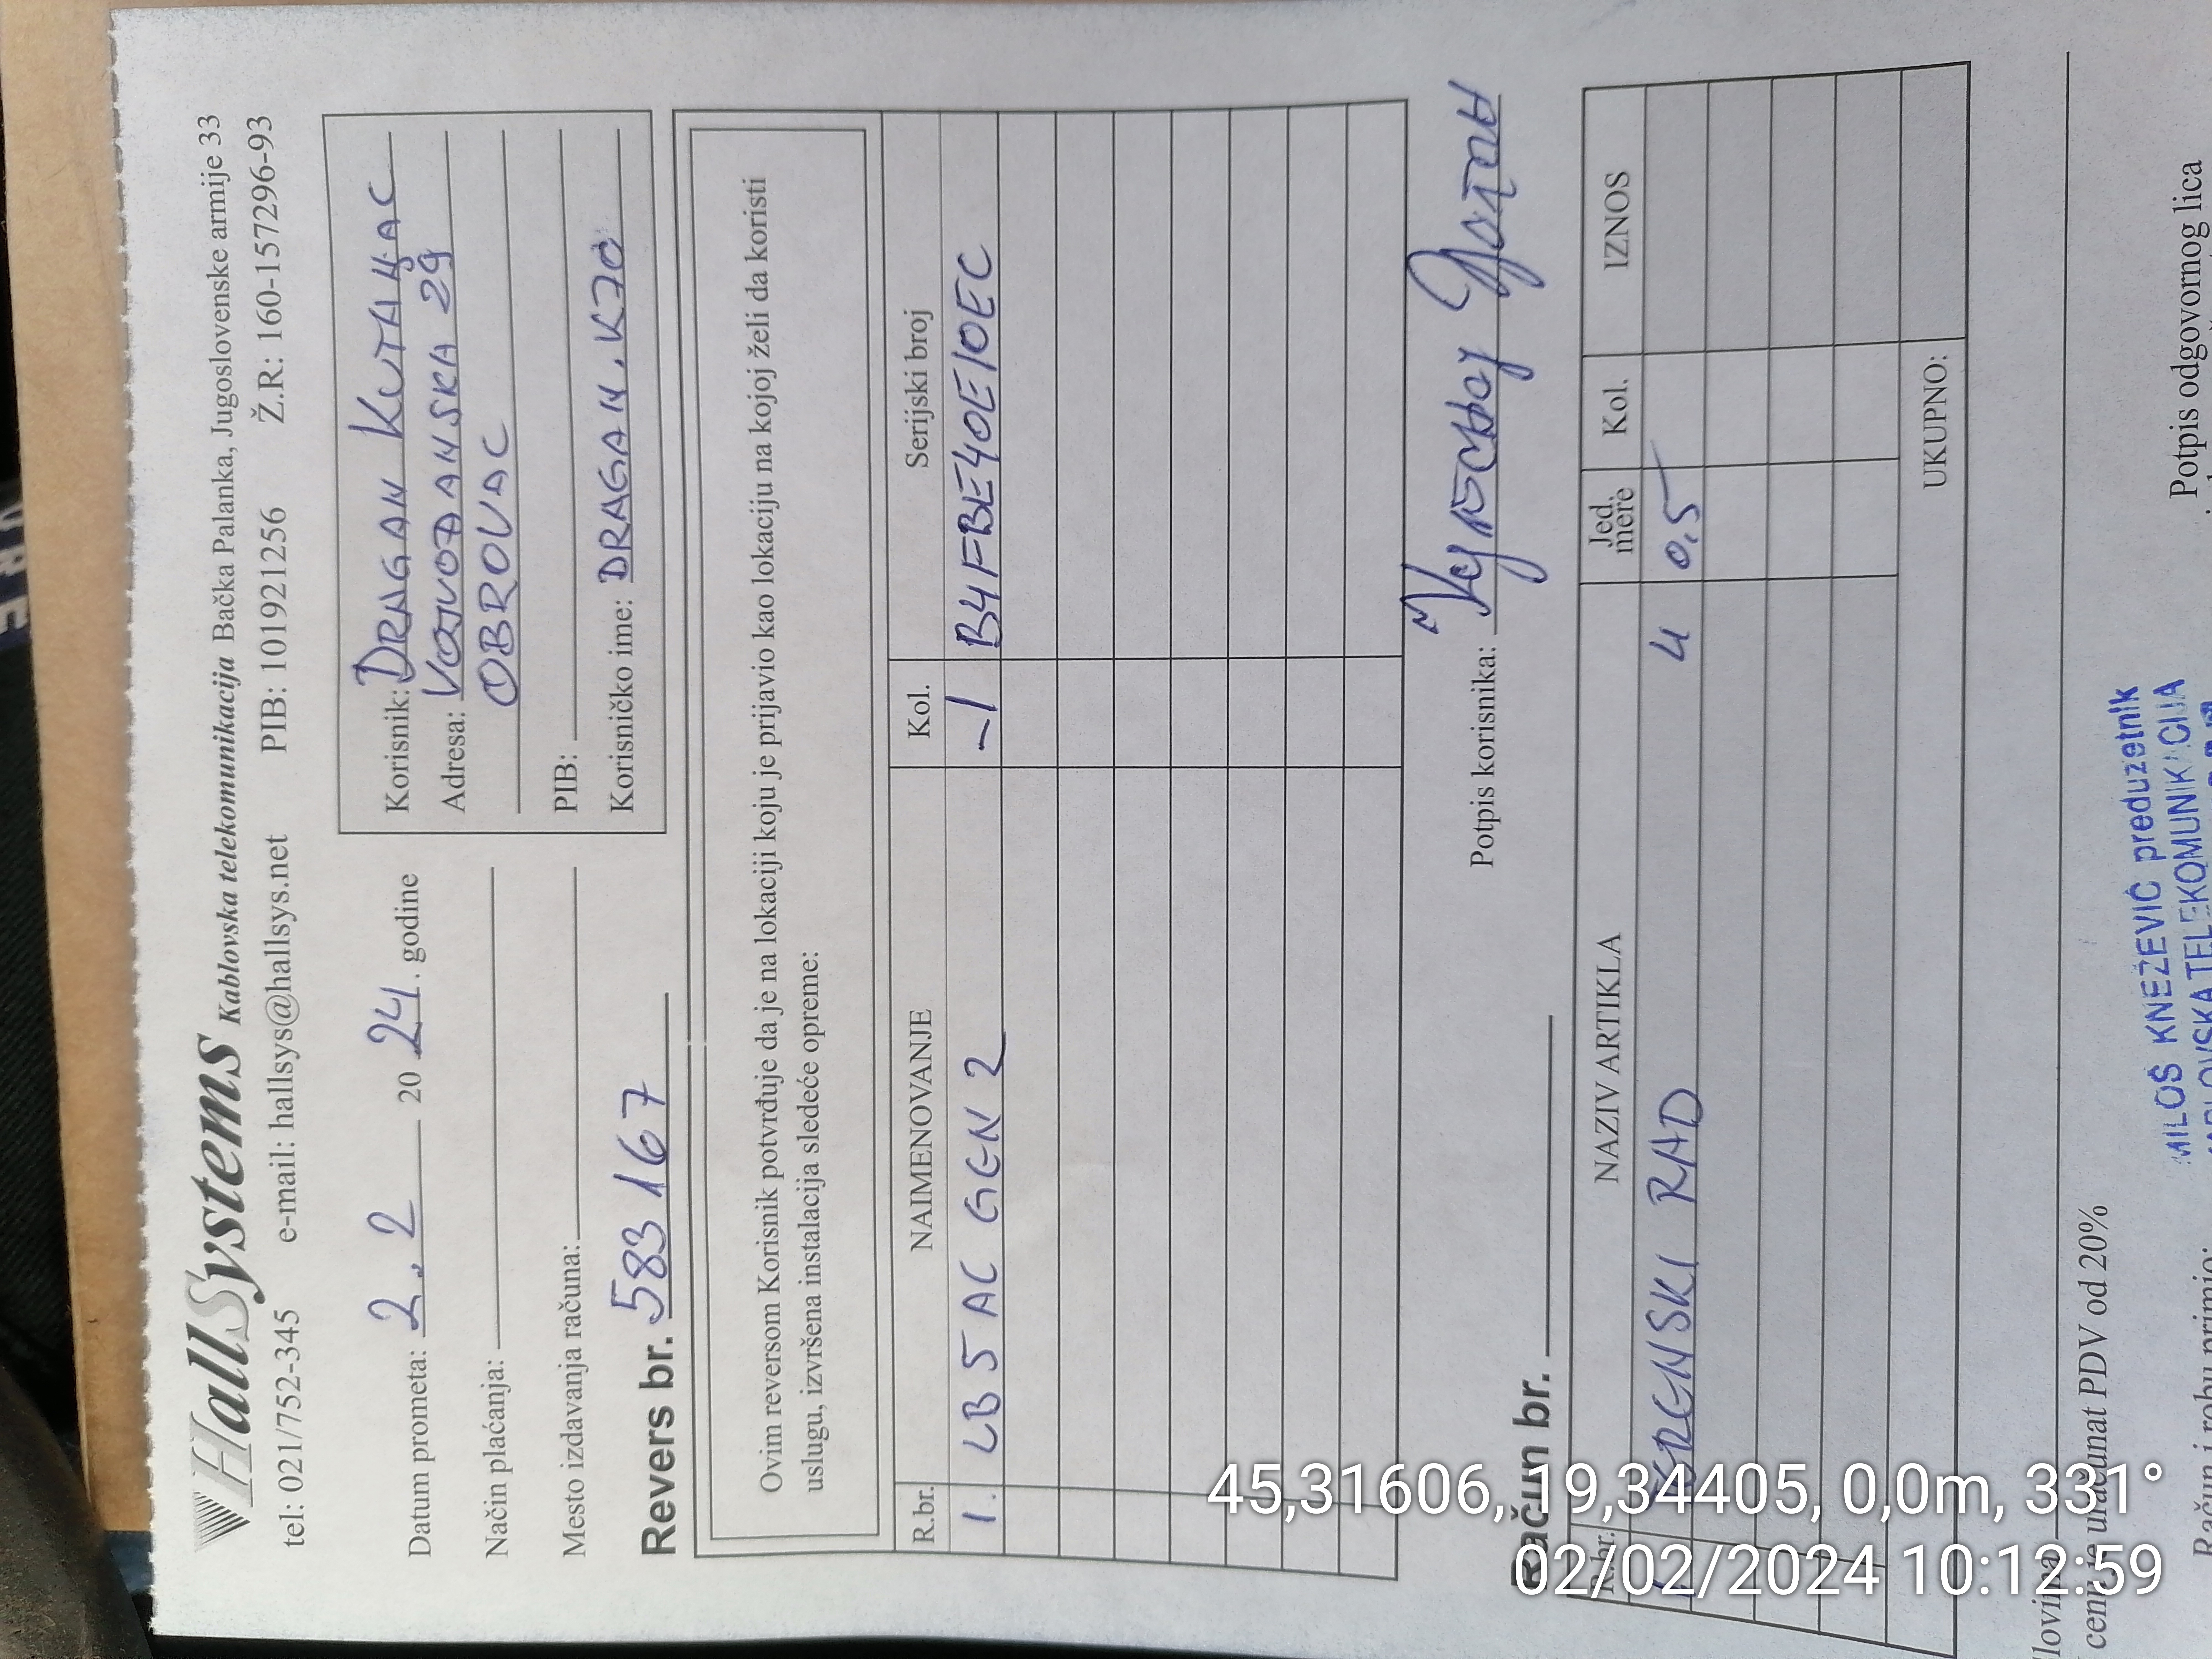 HallSystems Kablovska telekomunikacija Bačka Palanka, Jugoslovenske armije 33
tel: 021/752-345 e-mail: hallsys@hallsys.net PIB: 101921256 Ž.R.: 160-157296-93
Datum prometa: 2.2 20 24. godine
Način plaćanja:
Mesto izdavanja računa:
Korisnik: DRAGAN KUTANJAC
Adresa: VOJVOĐANSKA 29
OBROVAC
PIB:
Korisničko ime: DRAGAN.K70
Revers br. 583167
Ovim reversom Korisnik potvrđuje da je na lokaciji koju je prijavio kao lokaciju na kojoj želi da koristi
uslugu, izvršena instalacija sledeće opreme:
R.br. NAIMENOVANJE Kol. Serijski broj
1. LB 5 AC GEN 2 -1 B4FBE40E10EC
Potpis korisnika:
Račun br.
R.br. NAZIV ARTIKLA Jed. mere Kol. IZNOS
TERENSKI RAD 4 0,5
UKUPNO:
cenu je uračunat PDV od 20%
Račun i robu primio:
MILOŠ KNEŽEVIĆ preduzetnik
KABLOVSKA TELEKOMUNIKACIJA
Potpis odgovornog lica
45,31606, 19,34405, 0,0m, 331°
02/02/2024 10:12:59